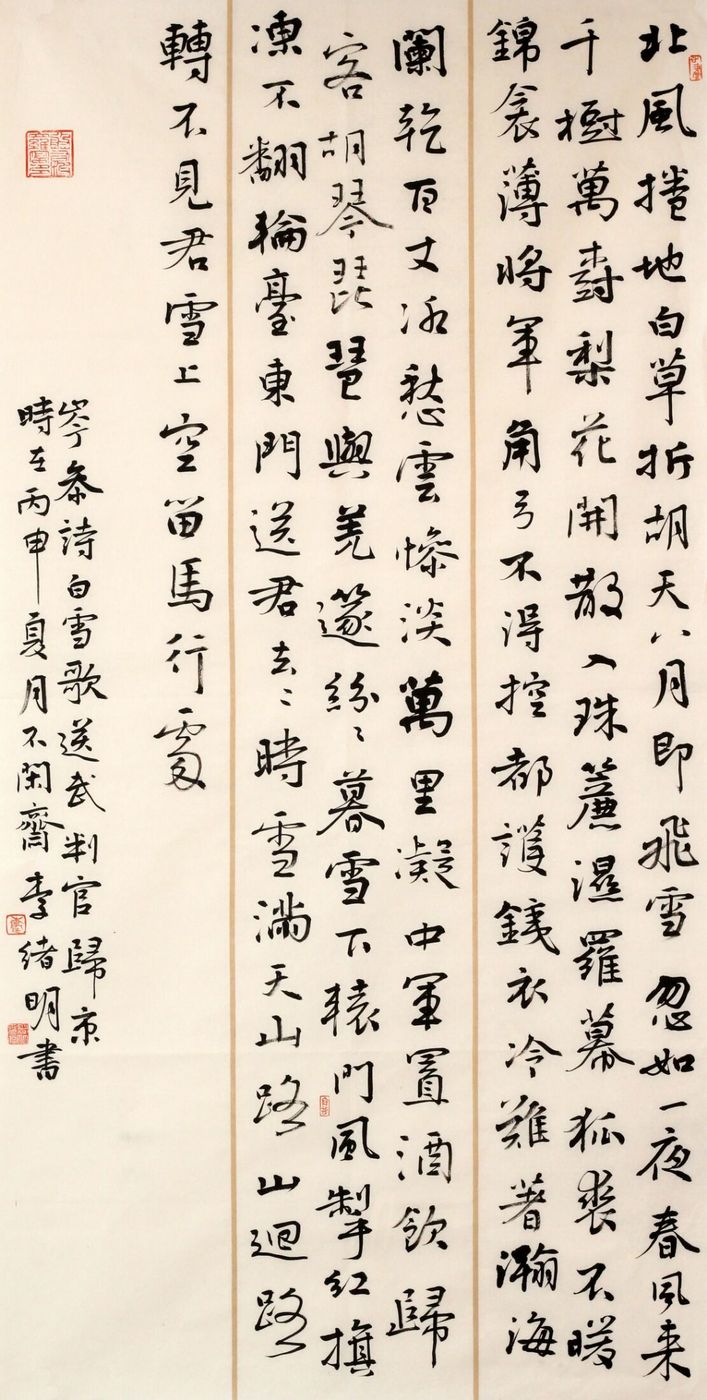 北風捲地白草折胡天八月即飛雪忽如一夜春風来
千樹萬樹梨花開散入珠簾濕羅幕狐裘不暖
錦衾薄將軍角弓不得控都護鐵衣冷難著瀚海
闌乾百丈冰愁雲慘淡萬里凝中軍置酒飲歸
客胡琴琵琶與羌篴紛〻暮雪下轅門風掣紅旗
凍不翻輪臺東門送君去〻時雪滿天山路山迴路
轉不見君雪上空留馬行處
岑參詩白雪歌送武判官歸京
時在丙申夏月不閑齋李緒明書